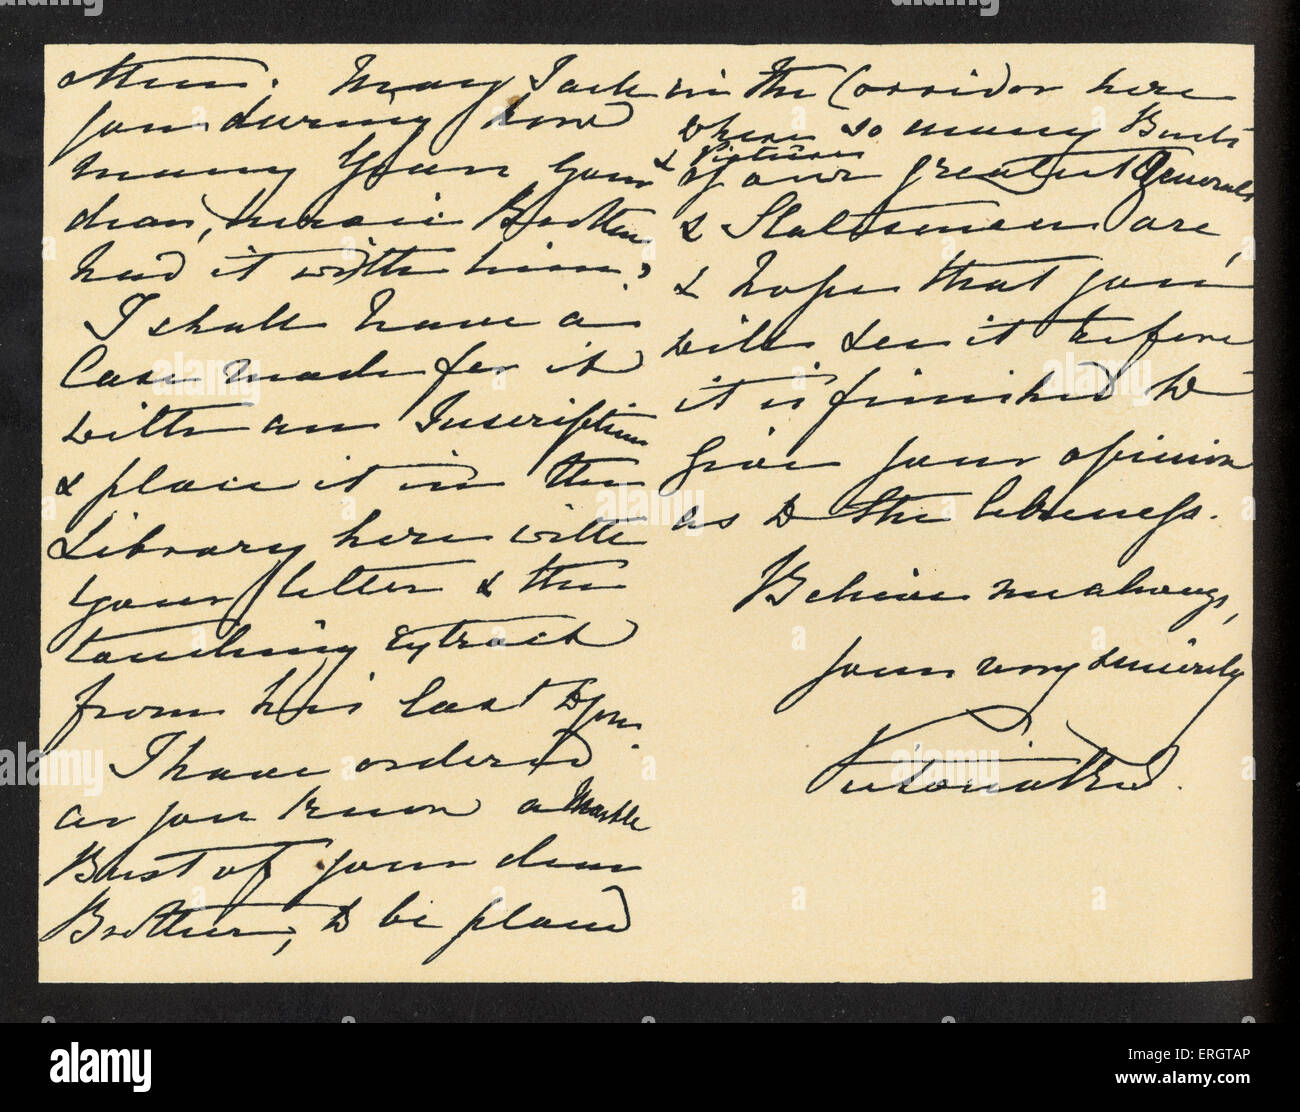 others. May I ask
you during how
many years your
dear, heroic Brother
had it with him?
I shall have a
Case made for it
with an Inscription
& place it in the
Library here with
your letter & the
touching extract
from his last to you.
I have ordered
as you know a Marble
Bust of your dear
Brother, to be placed
in the Corridor here
where so many Busts
& Pictures
of our greatest Generals
& Statesmen are,
& hope that you
will see it before
it is finished to
give your opinion
as to the likeness.
Believe me always,
yours very sincerely
Victoria R &
alamy
alamy
alamy
ERGTAP
www.alamy.com